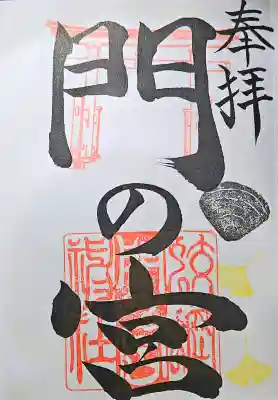 奉拝
門の宮